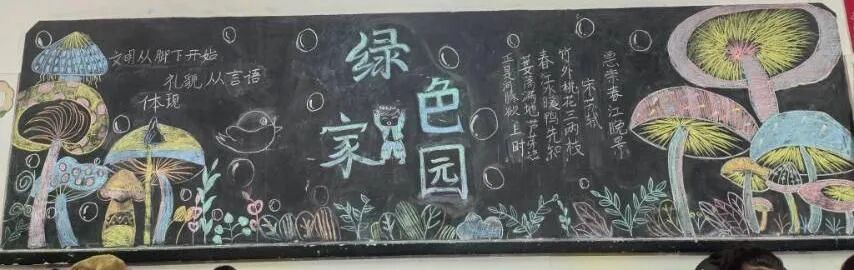 文明从脚下开始
礼貌从言语
体现
绿色
家园
惠崇春江晚景
宋 苏轼
竹外桃花三两枝
春江水暖鸭先知
蒌蒿满地芦芽短
正是河豚欲上时